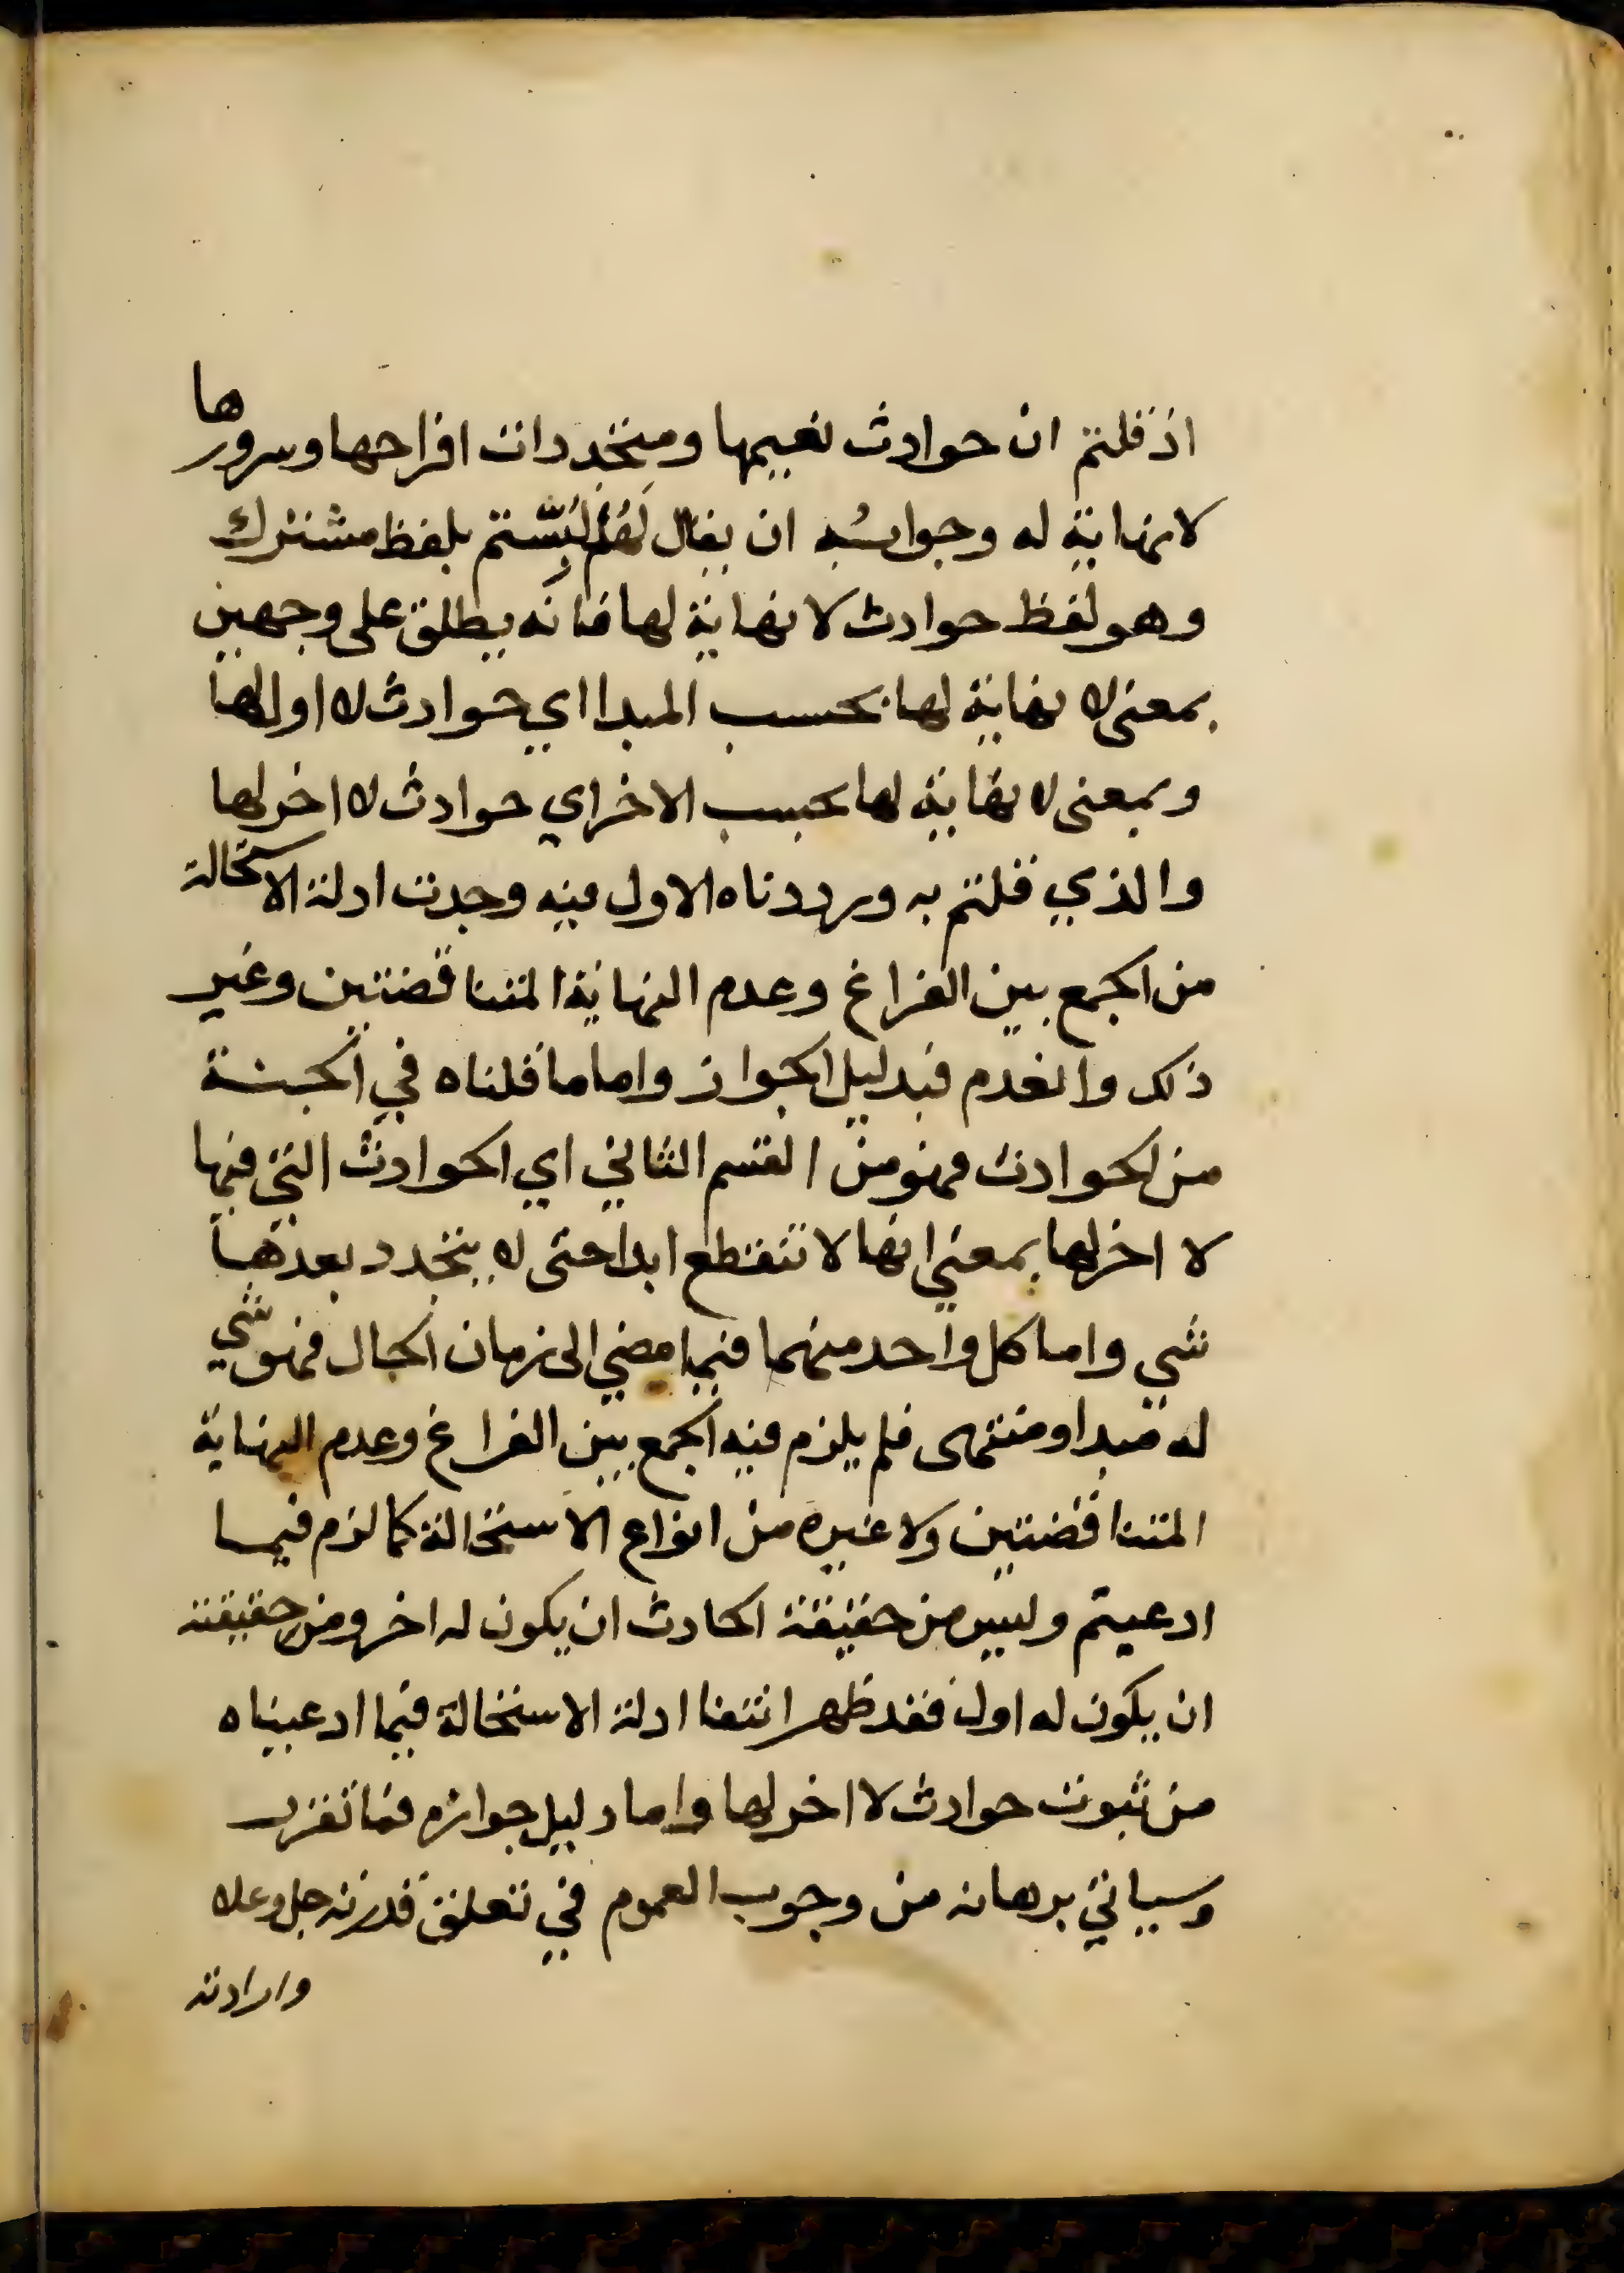 اذ قلتم ان حوادث نعيمها ومتجددات افراحها وسرورها
لا نهاية له وجوابه ان يقال لهم لَبَّستم بلفظ مشترك
وهو لفظ حوادث لا نهاية لها فانه يطلق على وجهين
بمعنى لا نهاية لها بحسب المبدا اي حوادث لا اول لها
وبمعنى لا نهاية لها بحسب الاخر اي حوادث لا اخر لها
والذي قلتم به ورددناه الاول فيه وجدت ادلة الاستحالة
من الجمع بين الفراغ وعدم النهاية المتناقضتين وغير
ذلك وانعدم فيه دليل الجواز واما ما قلناه في الجنة
من الحوادث فهو من القسم الثاني اي الحوادث التي فيها
لا اخر لها بمعنى انها لا تنقطع ابدا حتى لا يتجدد بعدها
شي واما كل واحد منهما فيما مضي الى زمان الحال فهو شي
له مبدا ومنتهى فلم يلزم فيه الجمع بين الفراغ وعدم النهاية
المتناقضتين ولا غيره من انواع الاستحالة كما لزم فيما
ادعيتم وليس من حقيقة الحادث ان يكون له اخر ومن حقيقته
ان يكون له اول فقد ظهر انتفا ادلة الاستحالة فيما ادعيناه
من ثبوت حوادث لا اخر لها واما دليل جوازه فما تقرر
وسياتي برهانه من وجوب العموم في تعلق قدرته جل وعلا
وارادته